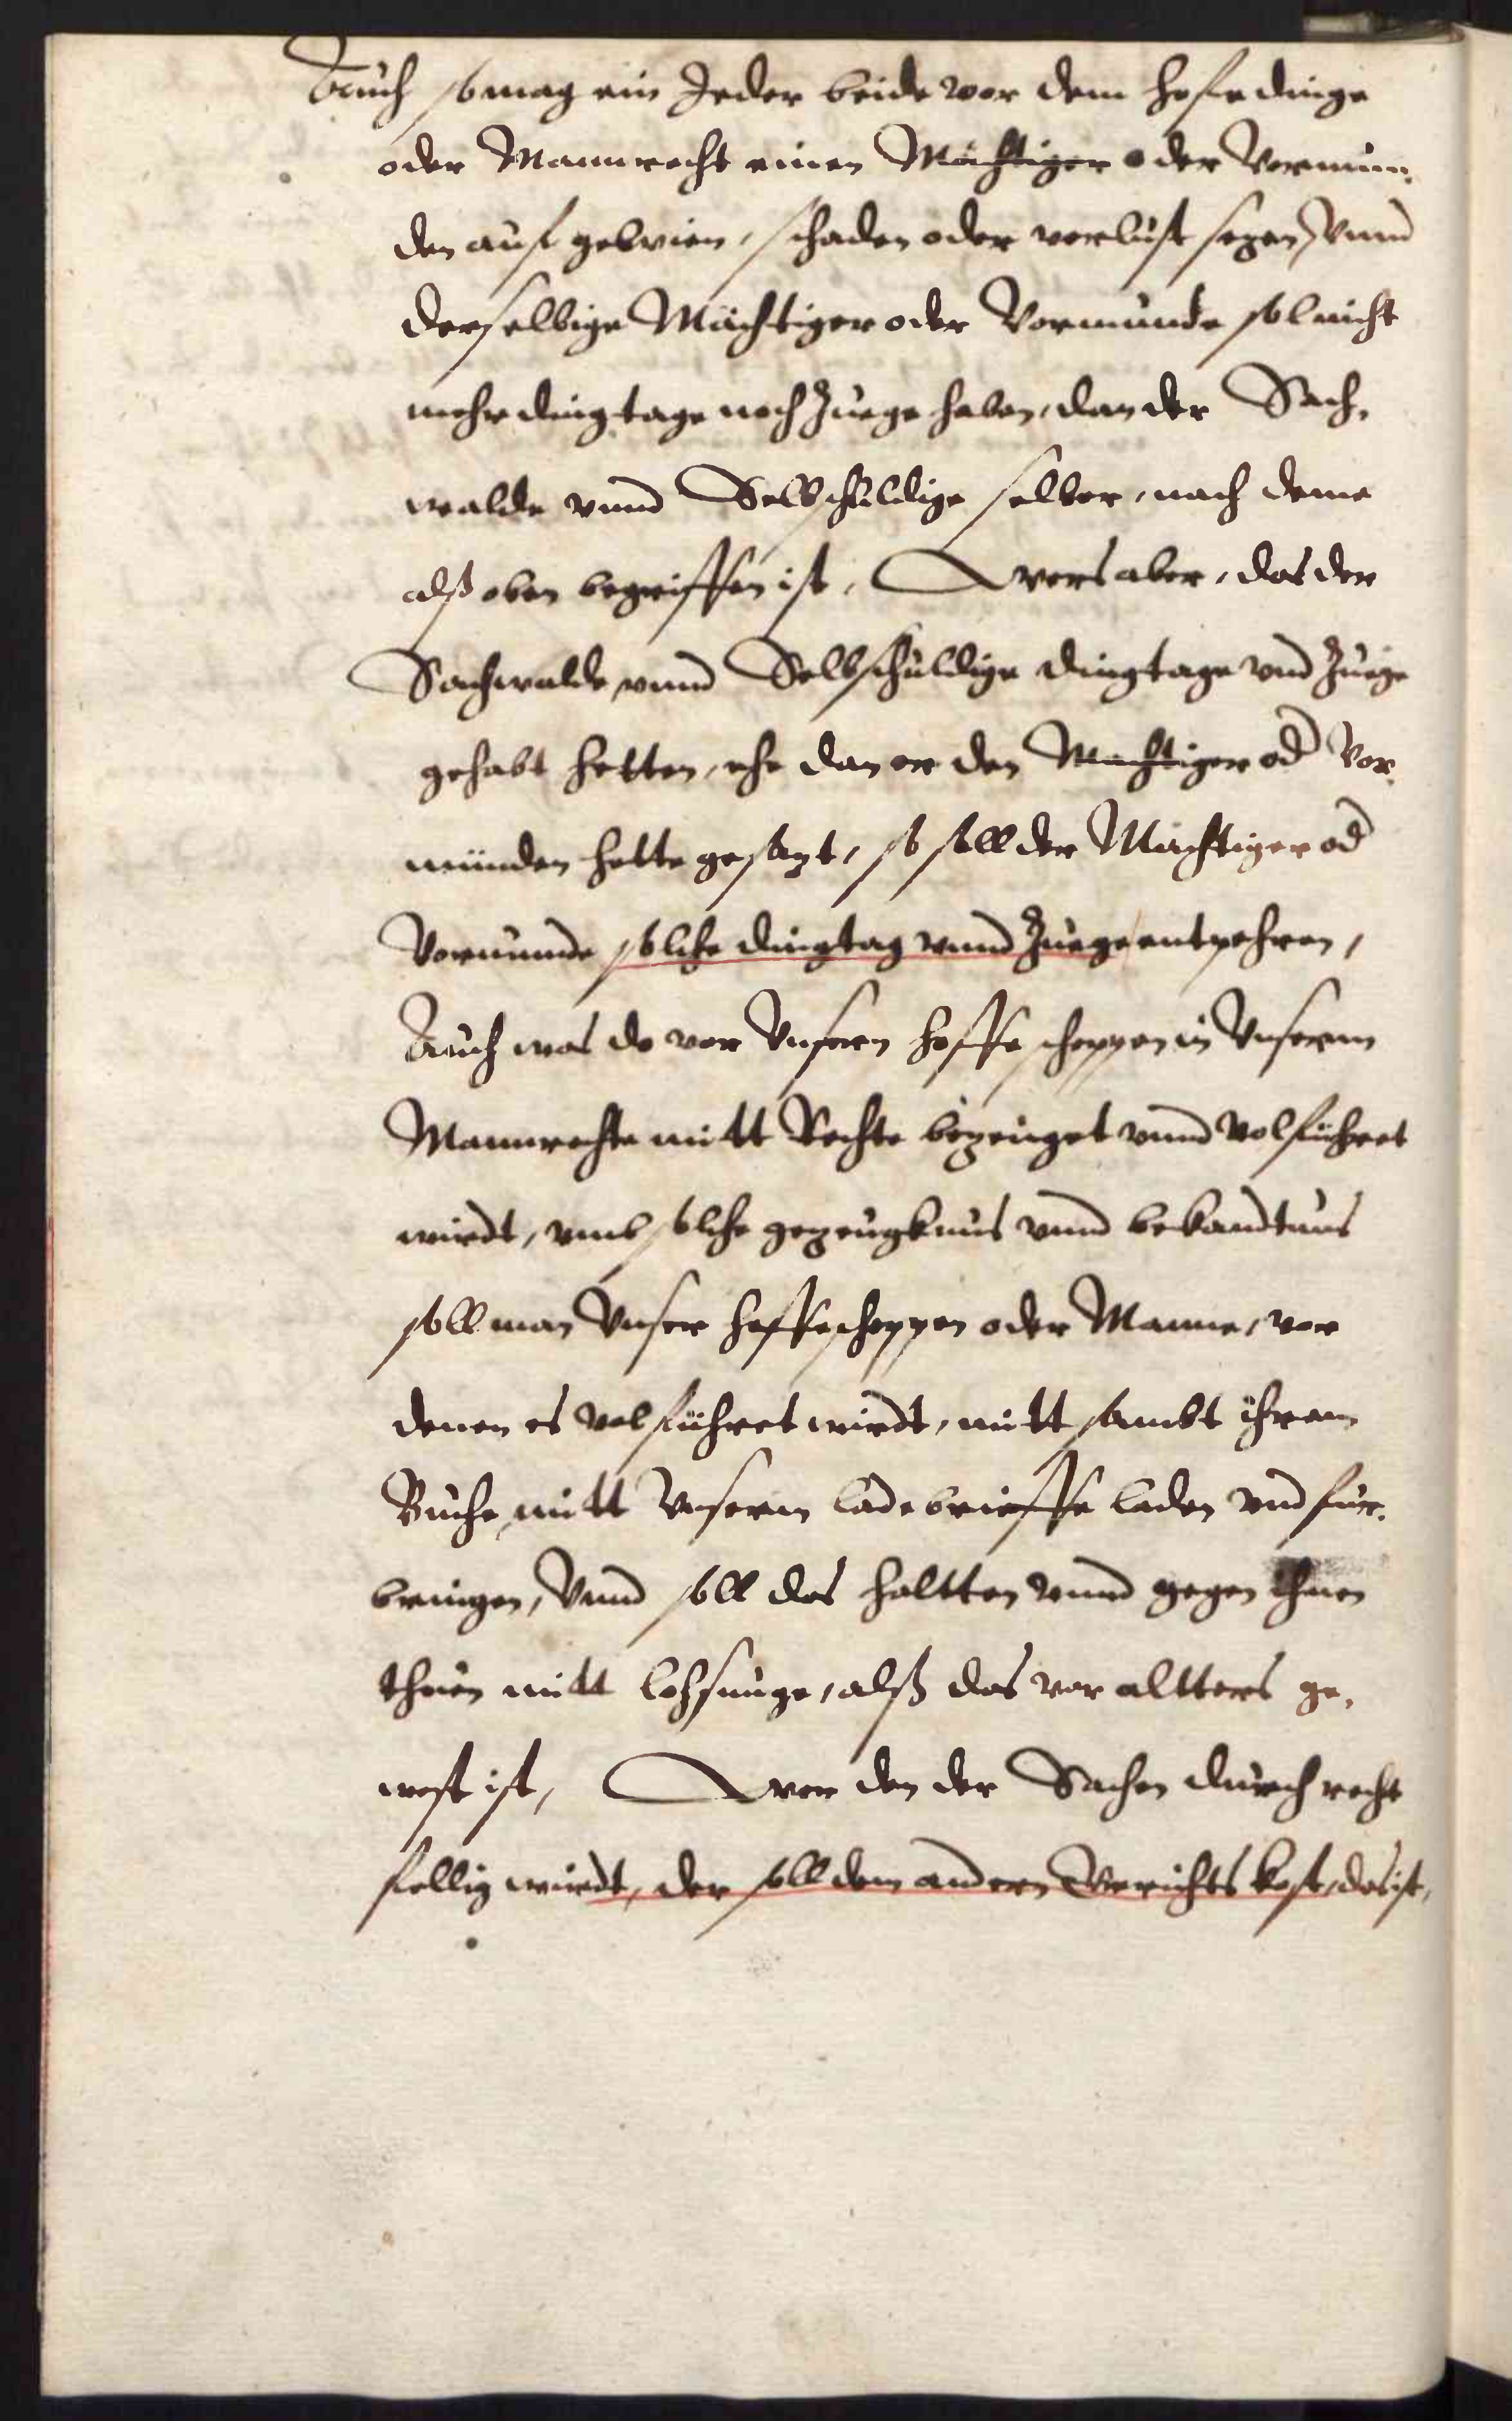 Auch so mag ein Jeder beide vor dem hofedinge
oder Mannrecht einen Mächtiger oder Vormun-
den auf gewien, schaden oder verlust sezen, Vnnd
derselbige Mächtiger oder Vormunde sol nicht
mehr dingtage noch Zuege haben, dan der Sach-
walde vnnd Selbschuldige selber, nach deme
alß oben begriffen ist, Wers aber, das der
Sachwalde vnnd Selbschuldige dingtage vnd Zuege
gehabt hetten, ehe dan er den Mechtiger od Vor-
münden hette gesazt, so soll der Mächtiger od
Vormunde solche dingtag vnnd Zuege entpehren,
Auch was do vor Vnsern hoffescheppen in Vnserm
Mannrechte mitt Rechte bezeuget vnnd volführet
wirdt, vmb solche gezeugknus vnnd bekandtnus
soll man Vnser hoffescheppen oder Manne, vor
denen es volführet wirdt, mitt sambt ihrem
Buche, mitt Vnserm ladebrieffe laden vnd für-
bringen, Vnnd soll das haltten vnnd gegen ihnen
thuen mitt lohsunge, alß das vor altters ge-
west ist, Wer den der Sachen durch recht
fellig wirdt, der soll dem andern Gerichts kost, das ist,